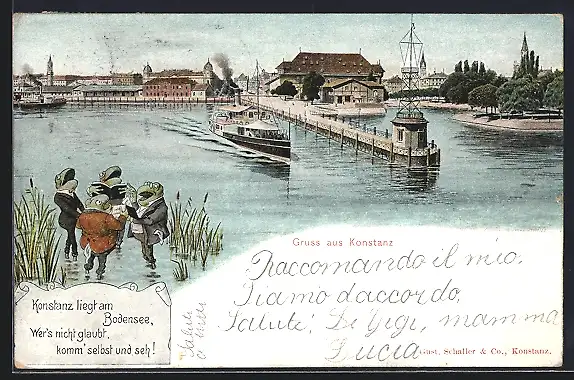 Gruss aus Konstanz
Raccomando il mio.
Siamo d'accordo.
Salute! Di Gigi, mamma
Lucia
Konstanz liegt am
Bodensee,
Wer's nicht glaubt,
komm' selbst und seh!
Gust. Schaller & Co., Konstanz.